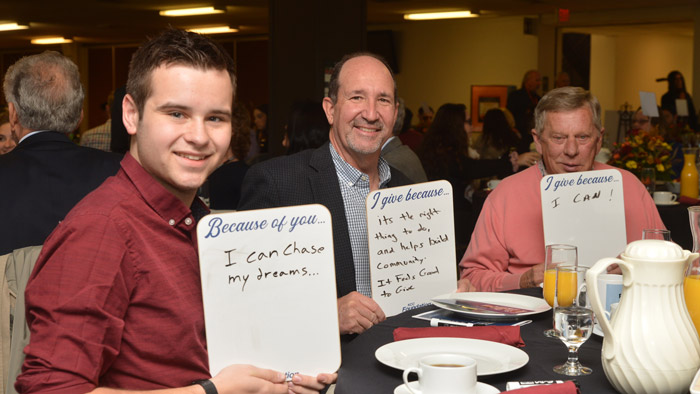 Because of you...
I can chase
my dreams...
I give because...
It's the right
thing to do,
and helps build
community.
It Feels Good
to Give
Foundation
I give because...
I CAN!
EXIT